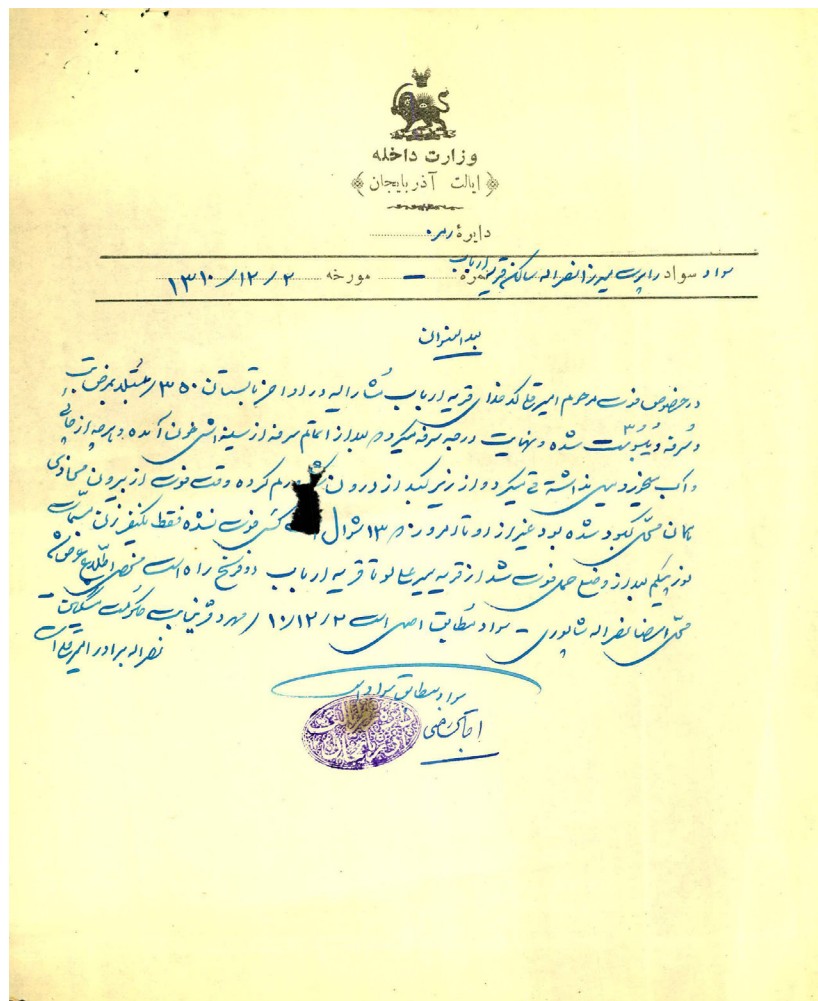 وزارت داخله
ایالت آذربایجان
دایرهٔ
سواد سواد راپورت میرزا نصراله ساکن قریه ارباب نمره — مورخه ۱۳۱۰/۱۲/۲
بعدالعنوان
در خصوص فوت مرحوم امیر کدخدای قریه ارباب مشارالیه در اواخر تابستان ۳۵۰
و سرفه و یبوست شده و نهایت درجه سرفه میکرد بعد از اتمام سرفه از سینه‌اش خون آمده و هرچه از
و آب میخورد میل نداشته قی میکرد و از زیر کبد از درون ورم کرده وقت فوت از بیرون محاذی
همان محل کبود شده بود غیر از او تا امروز ۱۳ شوال کسی فوت نشده فقط یکنفر زن مسمات
بیگم بعد از وضع حمل فوت شد از قریه تا قریه ارباب دو فرسخ راه است محض اطلاع عرض شد
محل امضا نصراله شاپوری – سواد مطابق اصل است ۱۰/۱۲/۲ نیابت حکومت
نصراله برادر امیر
سواد مطابق سواد است